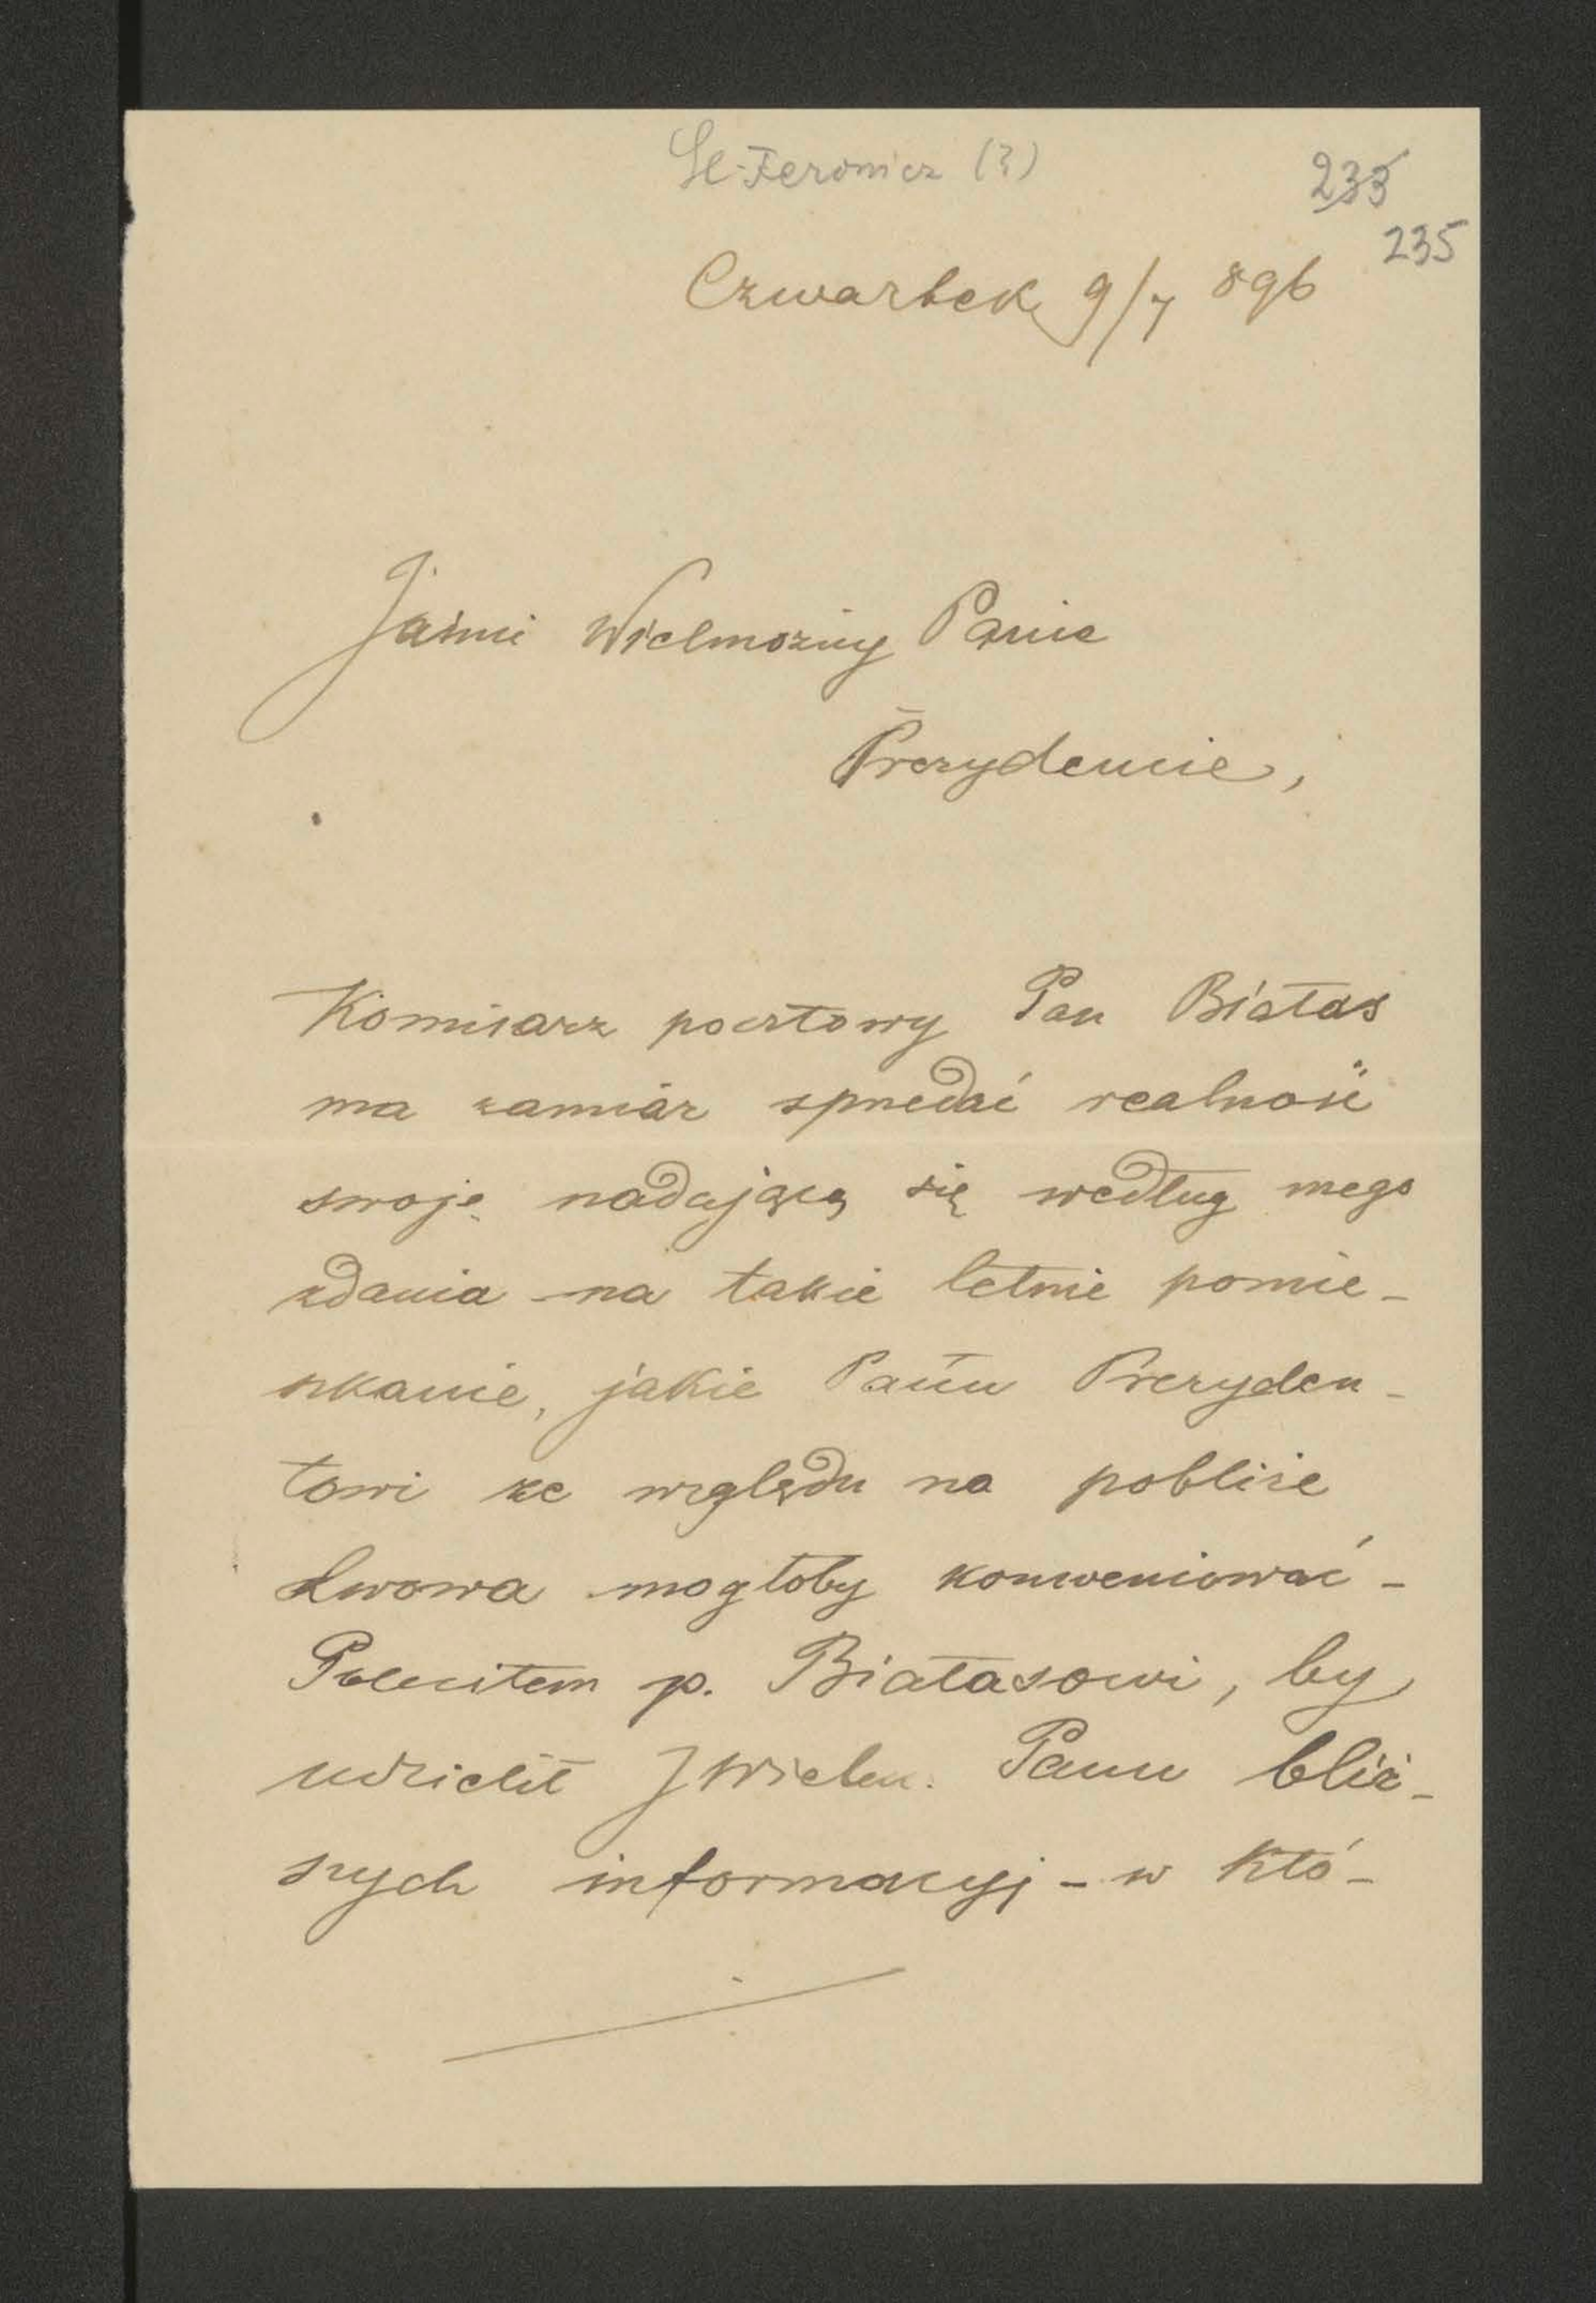 Czwartek 9/7 896
233
235
Jaśnie Wielmożny Panie
Prezydencie,
Komisarz pocztowy Pan Białas
ma zamiar sprzedać realność
swoję nadającą się według mego
zdania na takie letnie pomie-
szkanie, jakie Panu Prezyden-
towi ze względu na pobliże
Lwowa mogłoby konweniować -
Poleciłem p. Białasowi, by
udzielił JWielm. Panu bliż-
szych informacyj - w któ-